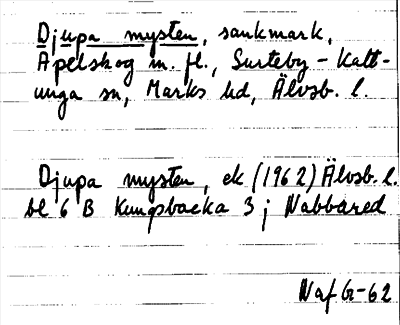 Djupa mysten, sankmark,
Apelskog m. fl., Surteby - Katt-
unga sn, Marks hd, Älvsb. l.
Djupa mysten, ek (1962) Älvsb. l.
bl 6 B Kungsbacka 3 j Nabbared
Naf G-62